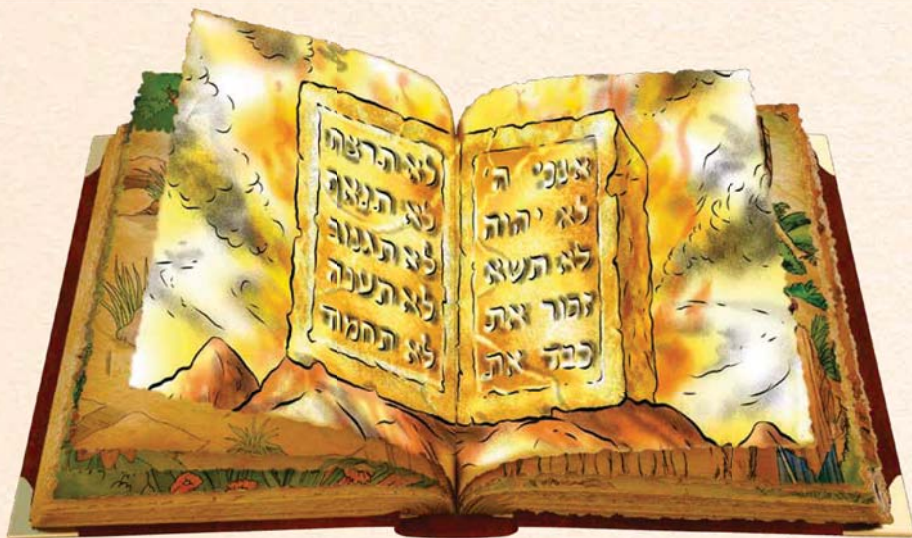 אנכי ה'
לא יהיה
לא תשא
זכור את
כבד את
לא תרצח
לא תנאף
לא תגנוב
לא תענה
לא תחמוד